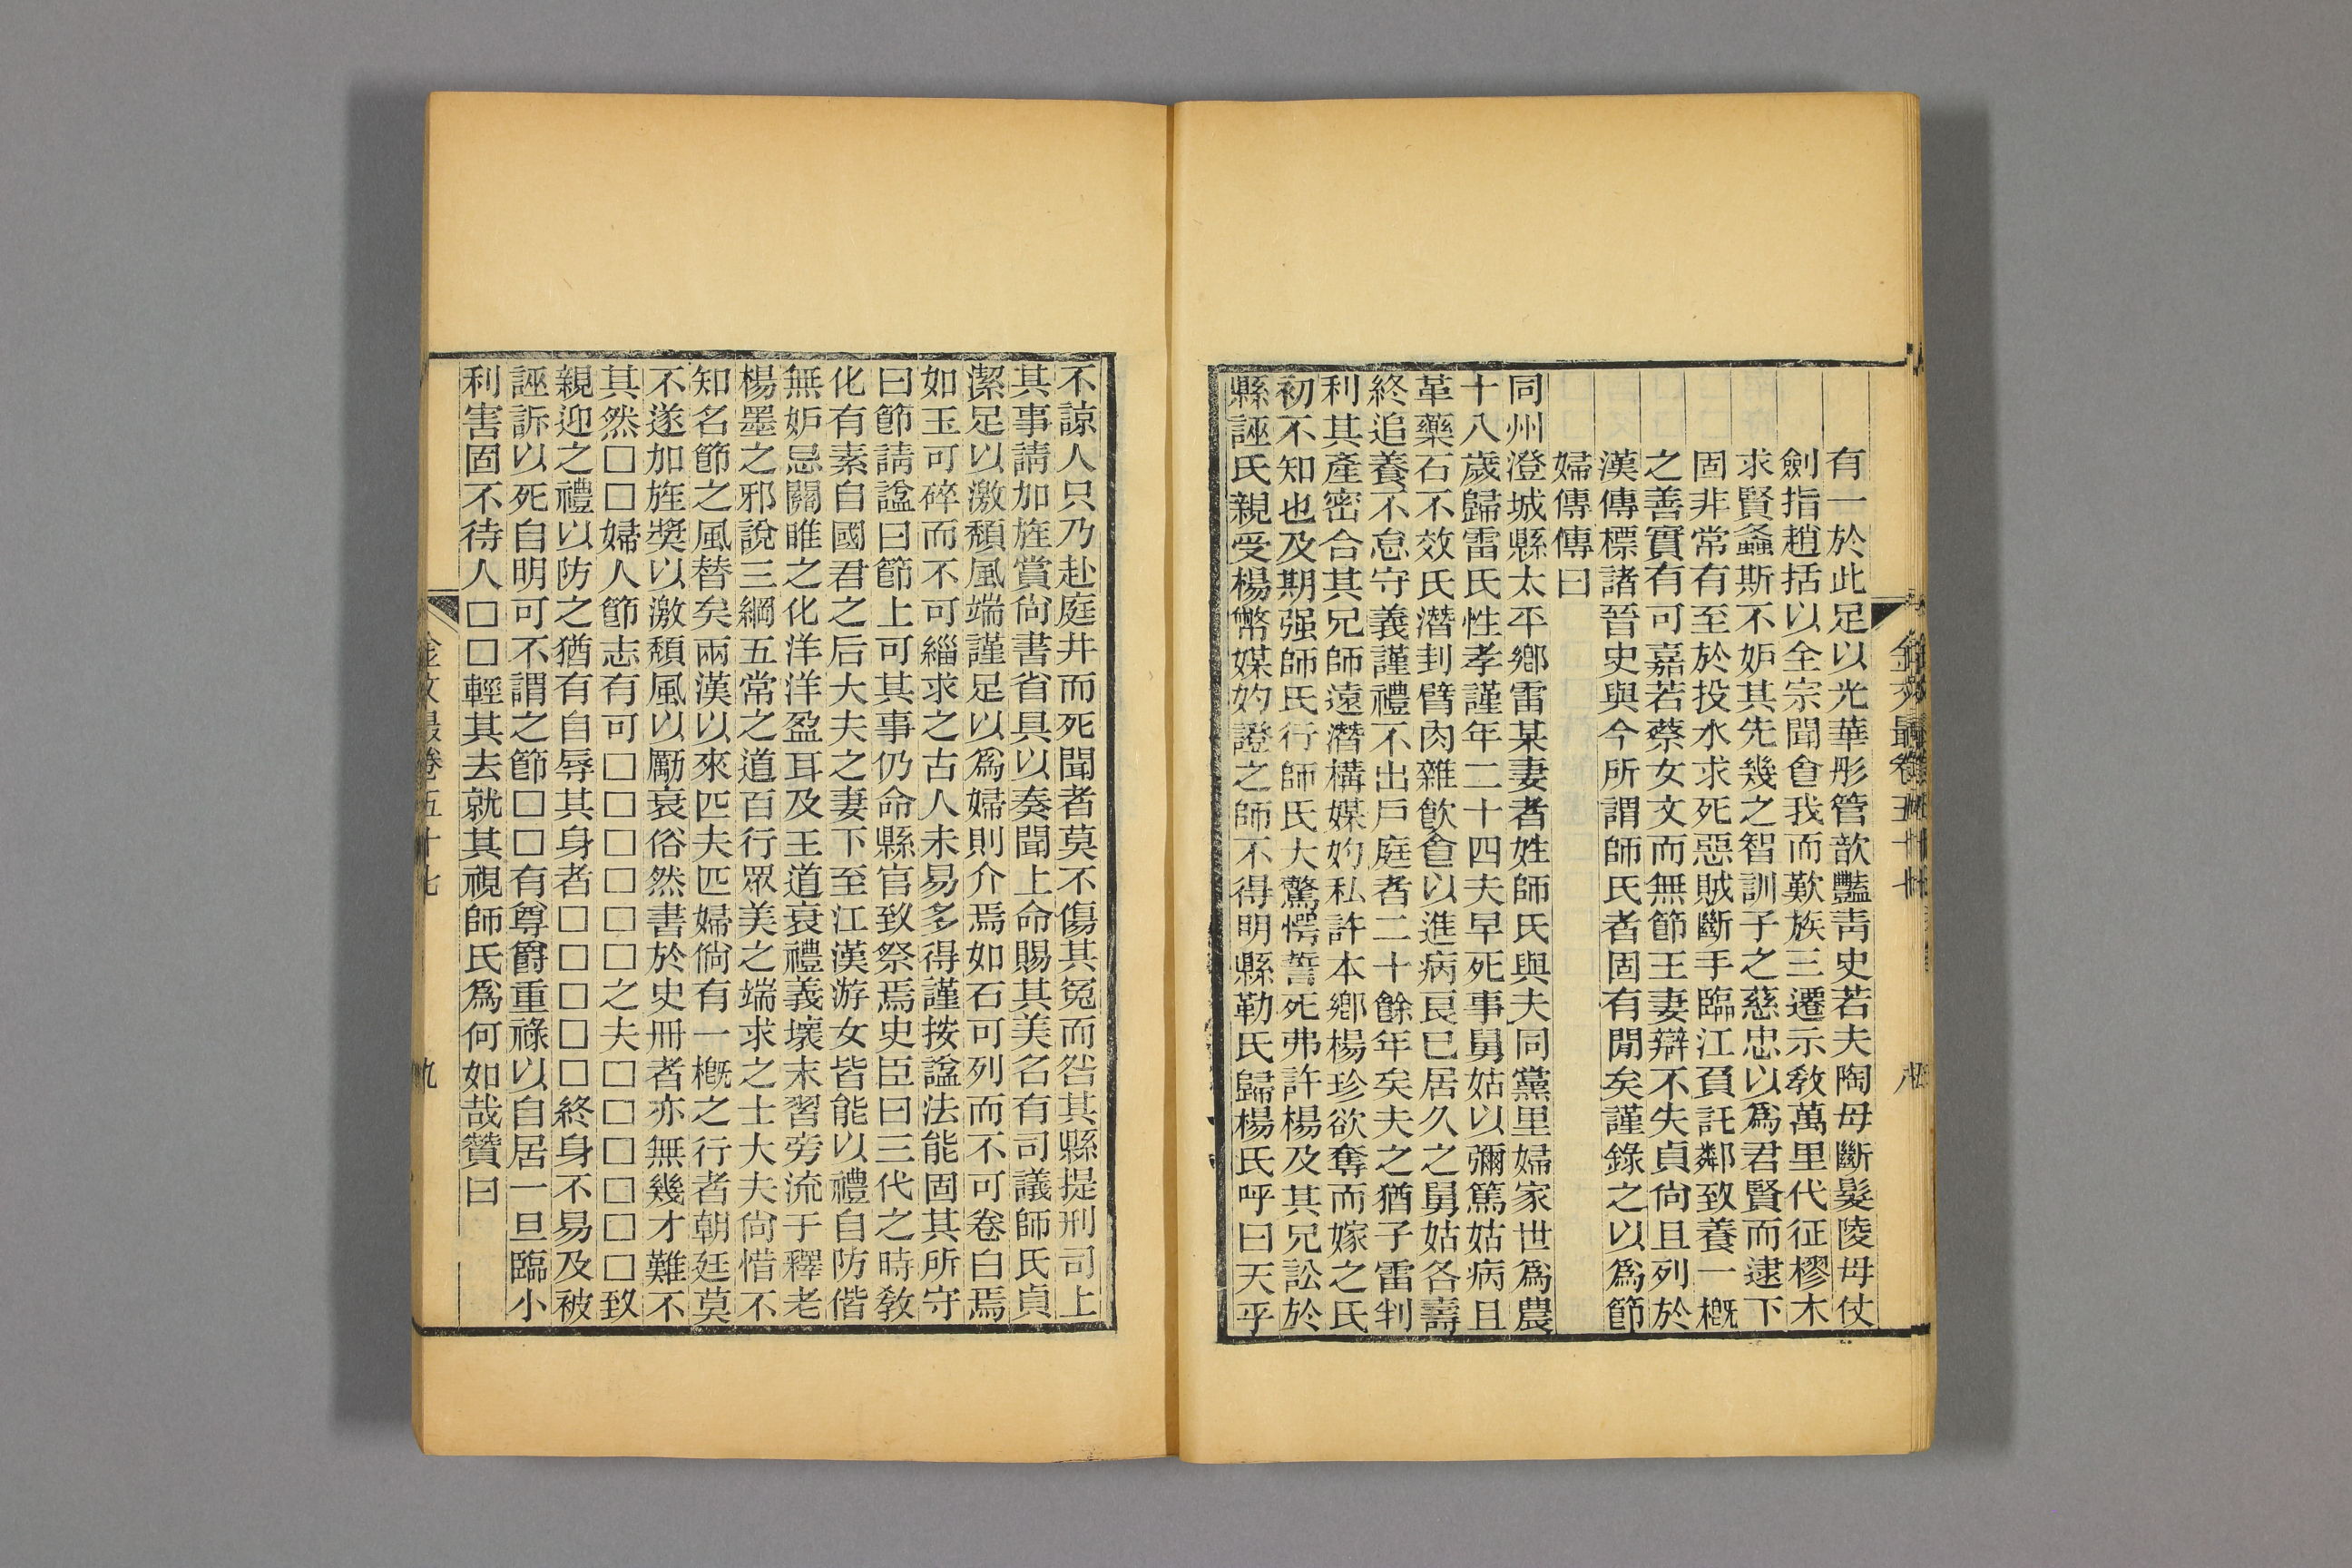 有一於此足以光華彤管歆豔靑史若夫陶母斷髮陵母仗
劍指趙括以全宗聞食我而歎族三遷示敎萬里代征樛木
求賢螽斯不妒其先幾之智訓子之慈忠以爲君賢而逮下
固非常有至於投水求死惡賊斷手臨江負託鄰致養一槪
之善實有可嘉若蔡女文而無節王妻辯不失貞尙且列於
漢傳標諸晉史與今所謂師氏者固有閒矣謹錄之以爲節
婦傳傳曰
同州澄城縣太平鄉雷某妻者姓師氏與夫同黨里婦家世爲農
十八歲歸雷氏性孝謹年二十四夫早死事舅姑以彌篤姑病且
革藥石不效氏潛刲臂肉雜飮食以進病良已居久之舅姑各壽
終追養不怠守義謹禮不出戶庭者二十餘年矣夫之猶子雷判
利其產密合其兄師遠潛構媒妁私許本鄉楊珍欲奪而嫁之氏
初不知也及期强師氏行師氏大驚愕誓死弗許楊及其兄訟於
縣誣氏親受楊幣媒妁證之師不得明縣勒氏歸楊氏呼曰天乎
金文最卷五十七
不諒人只乃赴庭井而死聞者莫不傷其冤而咎其縣提刑司上
其事請加旌賞尙書省具以奏聞上命賜其美名有司議師氏貞
潔足以激頹風端謹足以爲婦則介焉如石可列而不可卷白焉
如玉可碎而不可緇求之古人未易多得謹按諡法能固其所守
曰節請諡曰節上可其事仍命縣官致祭焉史臣曰三代之時敎
化有素自國君之后大夫之妻下至江漢游女皆能以禮自防偕
無妒忌關睢之化洋洋盈耳及王道衰禮義壞末習旁流于釋老
楊墨之邪說三綱五常之道百行眾美之端求之士大夫尙惜不
知名節之風替矣兩漢以來匹夫匹婦倘有一槪之行者朝廷莫
不遂加旌獎以激頹風以勵衰俗然書於史冊者亦無幾才難不
其然□□婦人節志有可□□□□□□之夫□□□□□□致
親迎之禮以防之猶有自辱其身者□□□□□終身不易及被
誣訴以死自明可不謂之節□□有尊爵重祿以自居一旦臨小
利害固不待人□□輕其去就其視師氏爲何如哉贊曰
金文最卷五十七
九